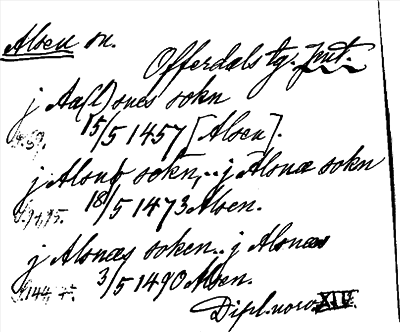 Alsen sn.
Offerdals tg. Jmt.
j Aa(l)snes sokn
15/5 1457 [Alsen].
j Alsnø sokn, .. j Alsnæ sokn
18/5 1473 Alsen.
j Alsnæs soken .. j Alsnæs
3/5 1490 Alsen.
Dipl. norv. XIV.